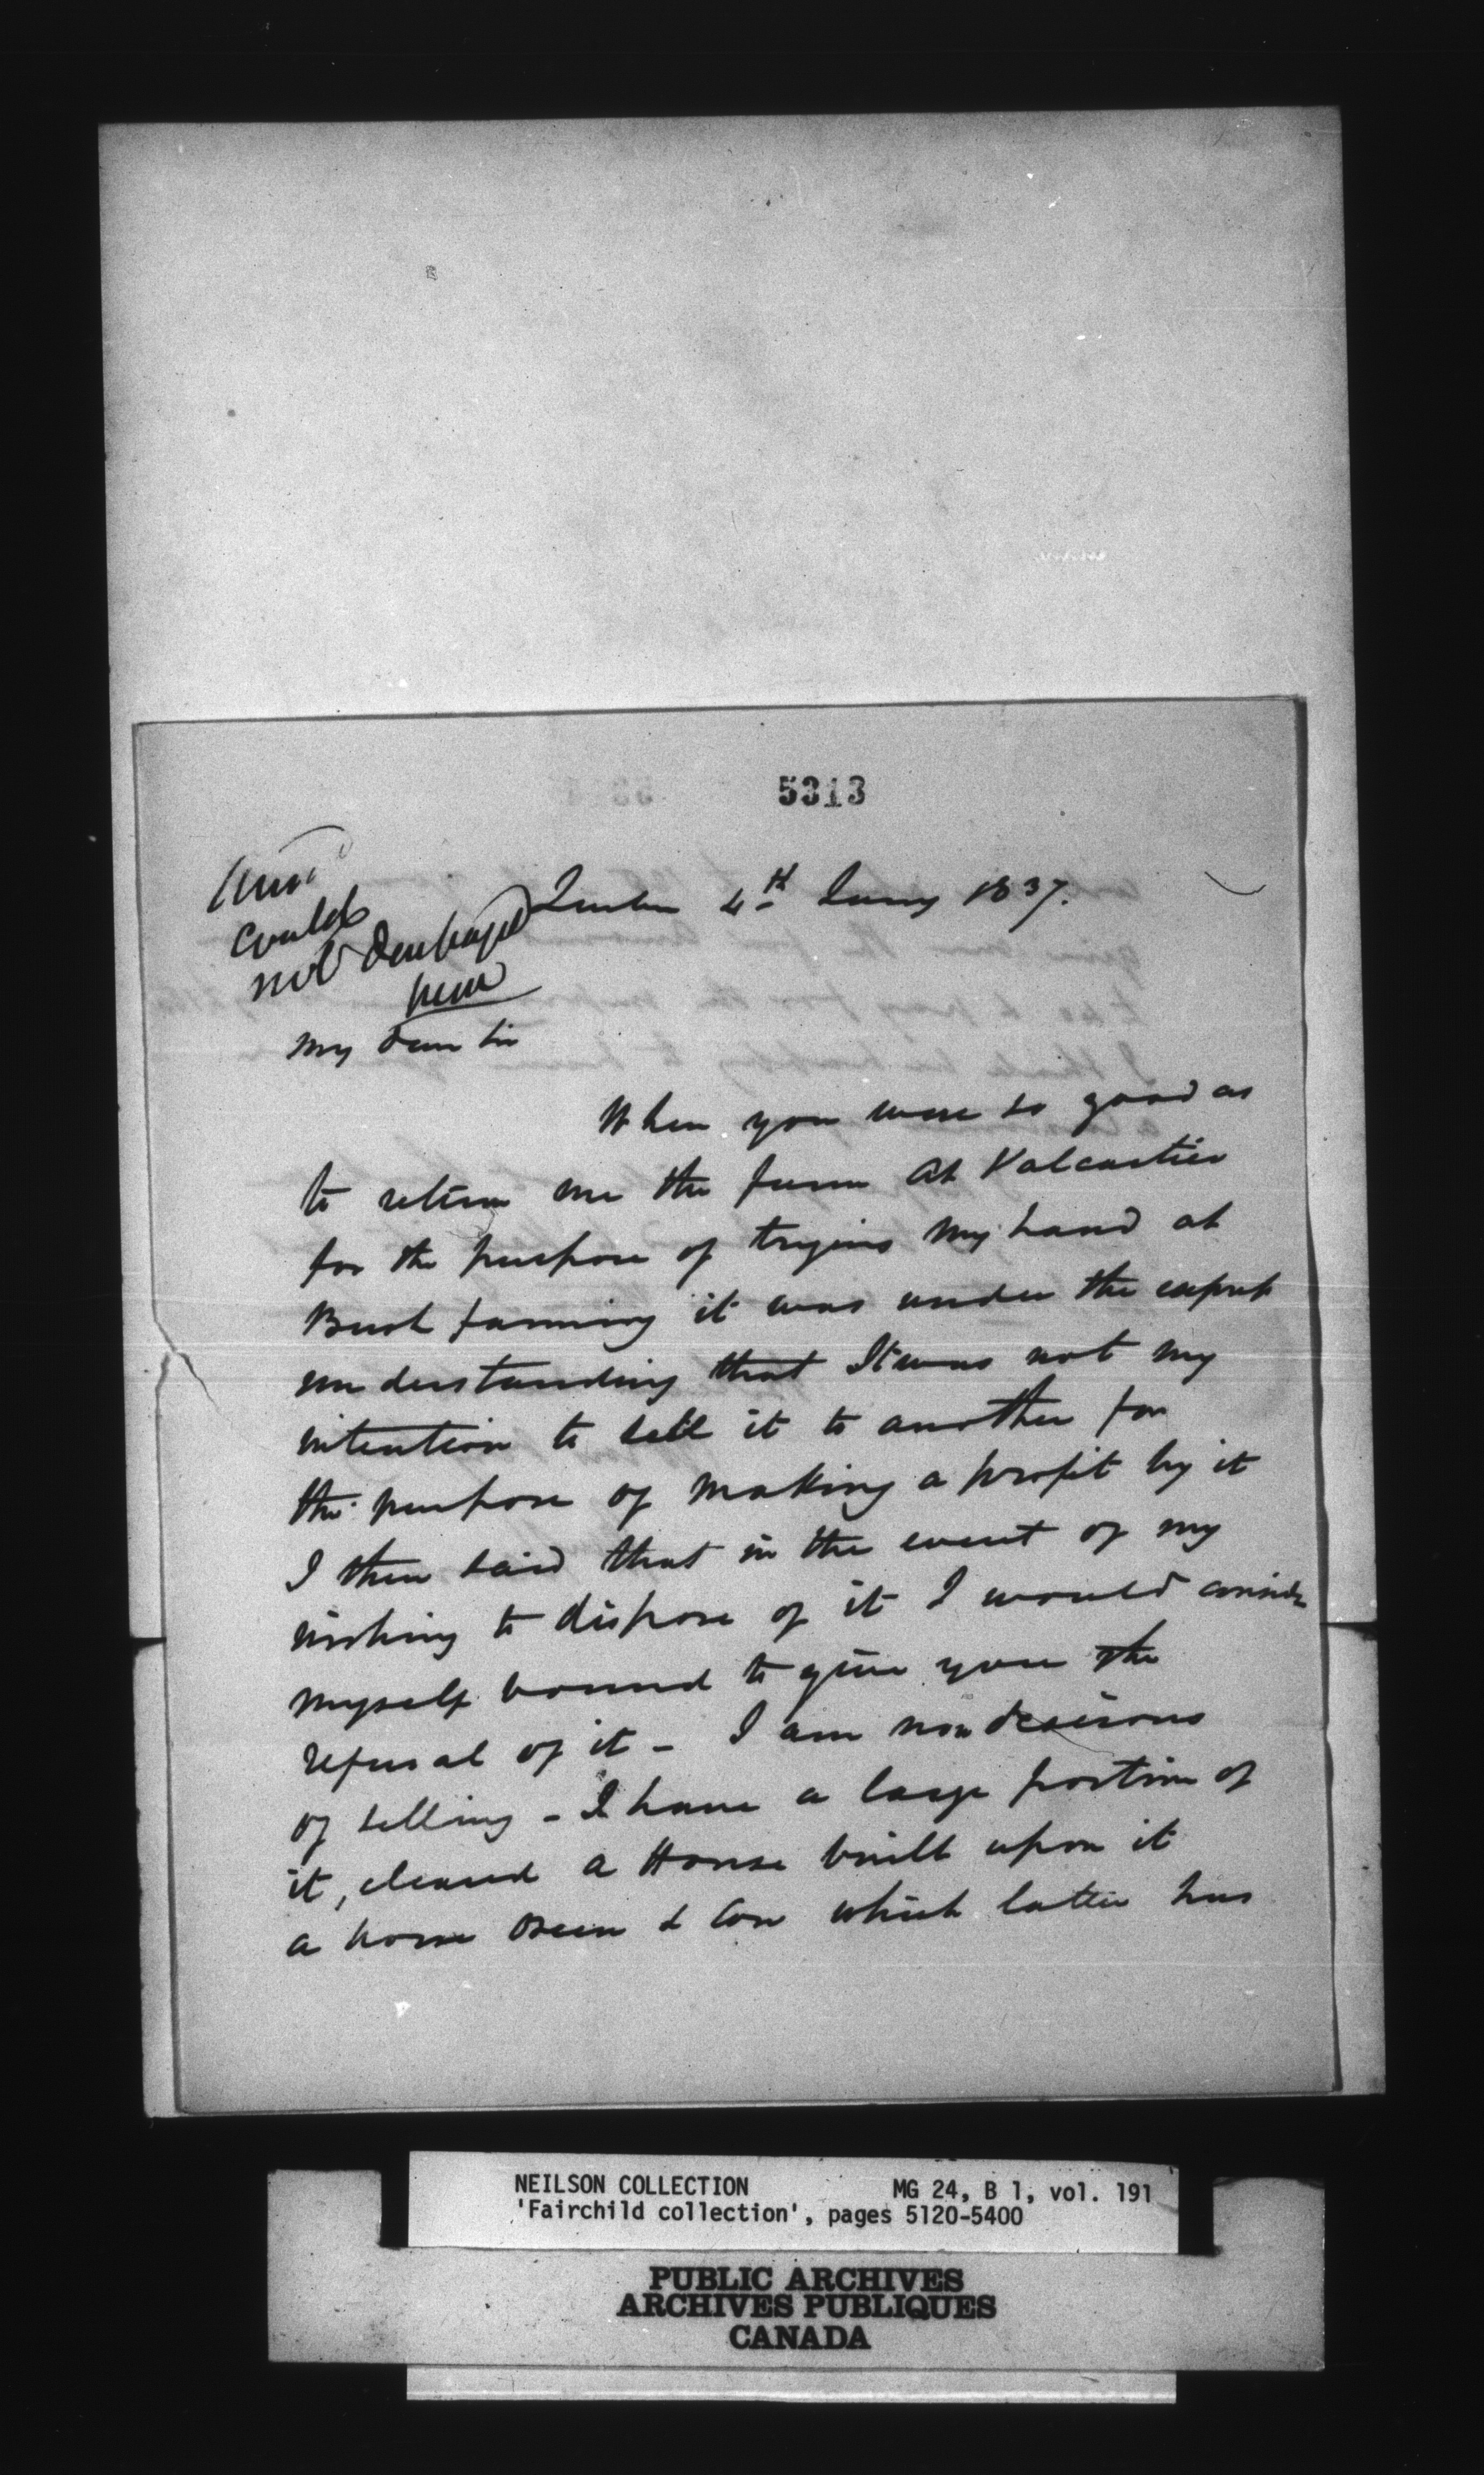 5313
could
not
here
Quebec 4th Jany 1837.
My Dear Sir
When you were so good as
to return me the farm at Valcartier
for the purpose of trying my hand at
Bush farming it was under the express
understanding that It was not my
intention to sell it to another for
the purpose of making a profit by it
I then said that in the event of my
wishing to dispose of it I would consider
myself bound to give you the
refusal of it - I am now desirous
of selling - I have a large portion of
it, cleared a House built upon it
a horse Oxen & Cow which latter has
NEILSON COLLECTION MG 24, B 1, vol. 191
'Fairchild collection', pages 5120-5400
PUBLIC ARCHIVES
ARCHIVES PUBLIQUES
CANADA